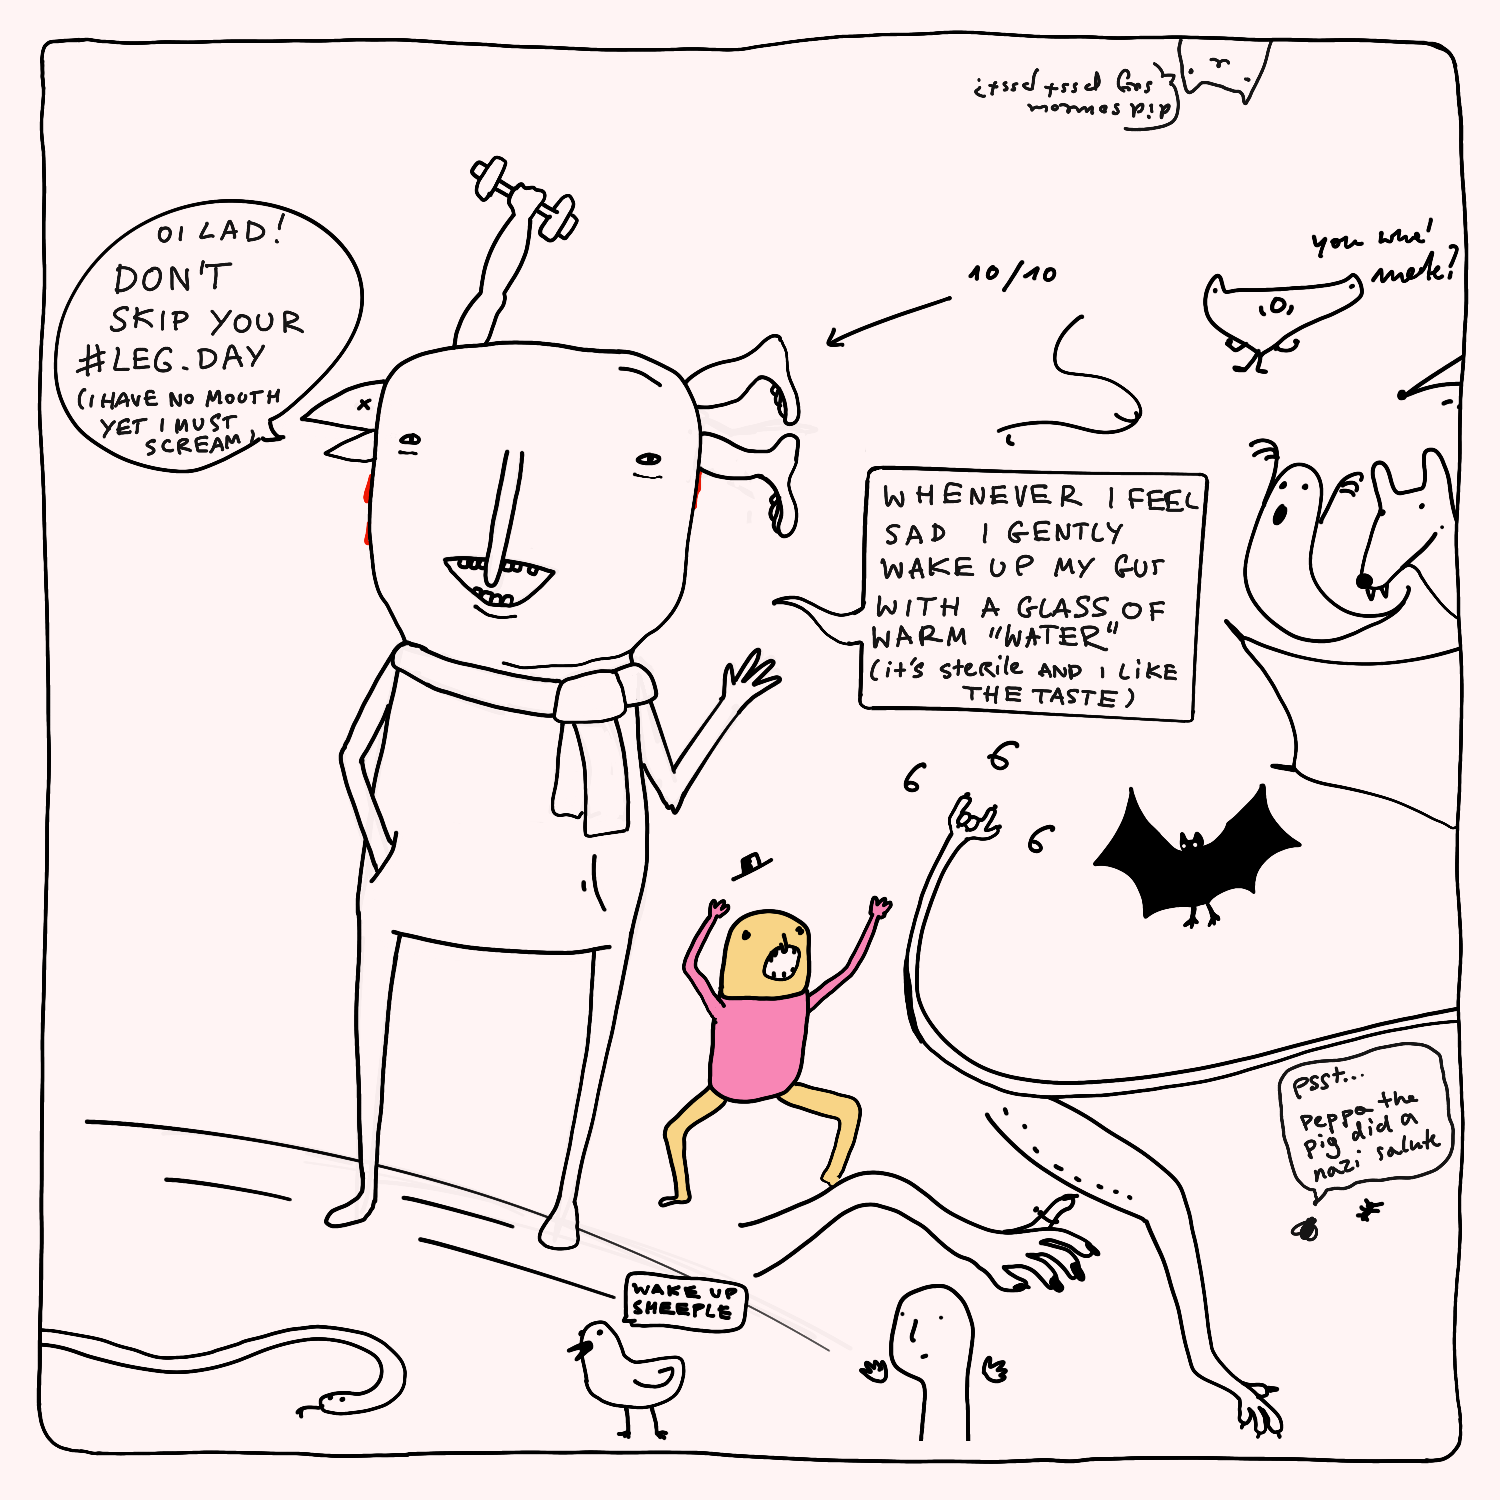 did someon
say psst psst?
OI LAD!
DON'T
SKIP YOUR
#LEG.DAY
(I HAVE NO MOUTH
YET I MUST
SCREAM)
10/10
you wha'
mate?
WHENEVER I FEEL
SAD I GENTLY
WAKE UP MY GUT
WITH A GLASS OF
WARM "WATER"
(it's sterile AND I LIKE
THE TASTE)
6
6
6
psst...
peppa the
pig did a
nazi salute
WAKE UP
SHEEPLE